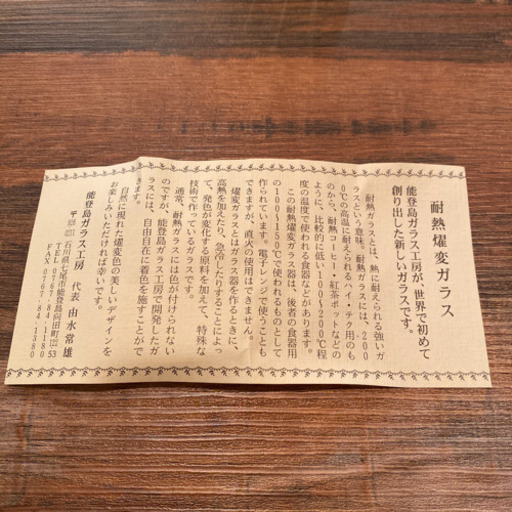 耐熱燿変ガラス
能登島ガラス工房が、世界で初めて
創り出した新しいガラスです。
耐熱ガラスとは、熱に耐えられる強いガ
ラスという意味。耐熱ガラスには、200
0℃の高温に耐えられるハイ・テク用のも
のから、耐熱コーヒー・紅茶ポットなどの
ように、比較的に低い100〜200℃程
度の温度で使われる食器などがあります。
この耐熱燿変ガラス器は、後者の食器用
の100〜150℃で使われるものとして
作られています。電子レンジで使うことも
できますが、直火の使用はできません。
燿変ガラスとはガラス器を作るときに、
高熱を加えたり、急冷したりすることによっ
て、発色が変化する原料を加えて、特殊な
技術で作っているガラスです。
通常、耐熱ガラスには色が付けられない
のですが、能登島ガラス工房で開発したガ
ラスには、自由自在に着色を施すことがで
きます。
自然に現れた燿変色の美しいデザインを
お楽しみいただければ幸いです。
能登島ガラス工房 代表 由水常雄
石川県七尾市能登島向田町
TEL 0767-84-1180
FAX 0767-84-1380